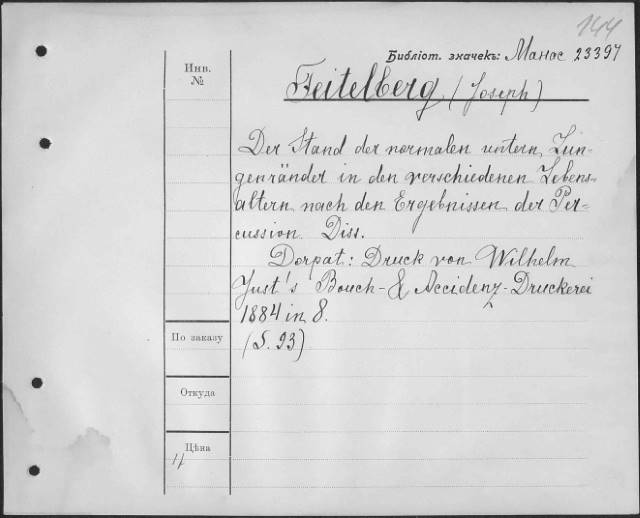 144
Библіот. значекъ: Манос 23397
Инв.
№
Feitelberg (Joseph)
Der Stand der normalen untern Lun-
genränder in den verschiedenen Lebens-
altern nach den Ergebnissen der Per-
cussion. Diss.
Dorpat: Druck von Wilhelm
Just's Bouch- & Accidenz-Druckerei
1884 in 8.
По заказу
(S. 93)
Откуда
Цѣна